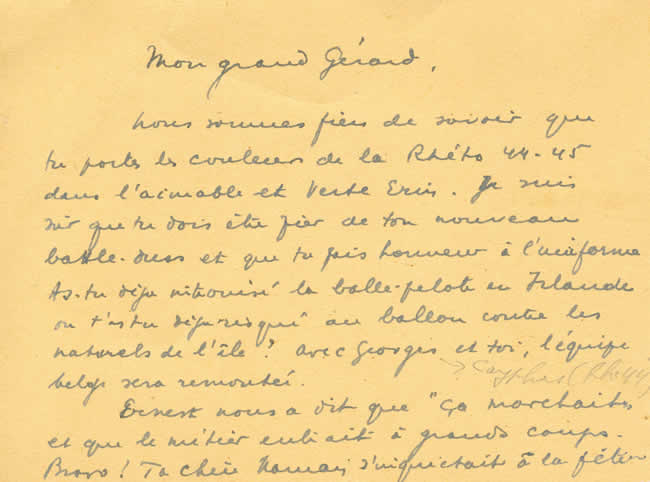 Mon grand Gérard,
Nous sommes fiers de savoir que
tu portes les couleurs de la Rhéto 44-45
dans l'aimable et Verte Erin. Je suis
sûr que tu dois être fier de ton nouveau
battle-dress et que tu fais honneur à l'uniforme
As-tu déjà intronisé la balle-pelote en Irlande
ou t'es-tu déjà risqué au ballon contre les
naturels de l'île? Avec Georges et toi, l'équipe
belge sera remontée.
(Rh 44)
Ernest nous a dit que "ça marchait"
et que le métier entrait à grands coups.
Bravo! Ta chère Maman s'inquiétait à la